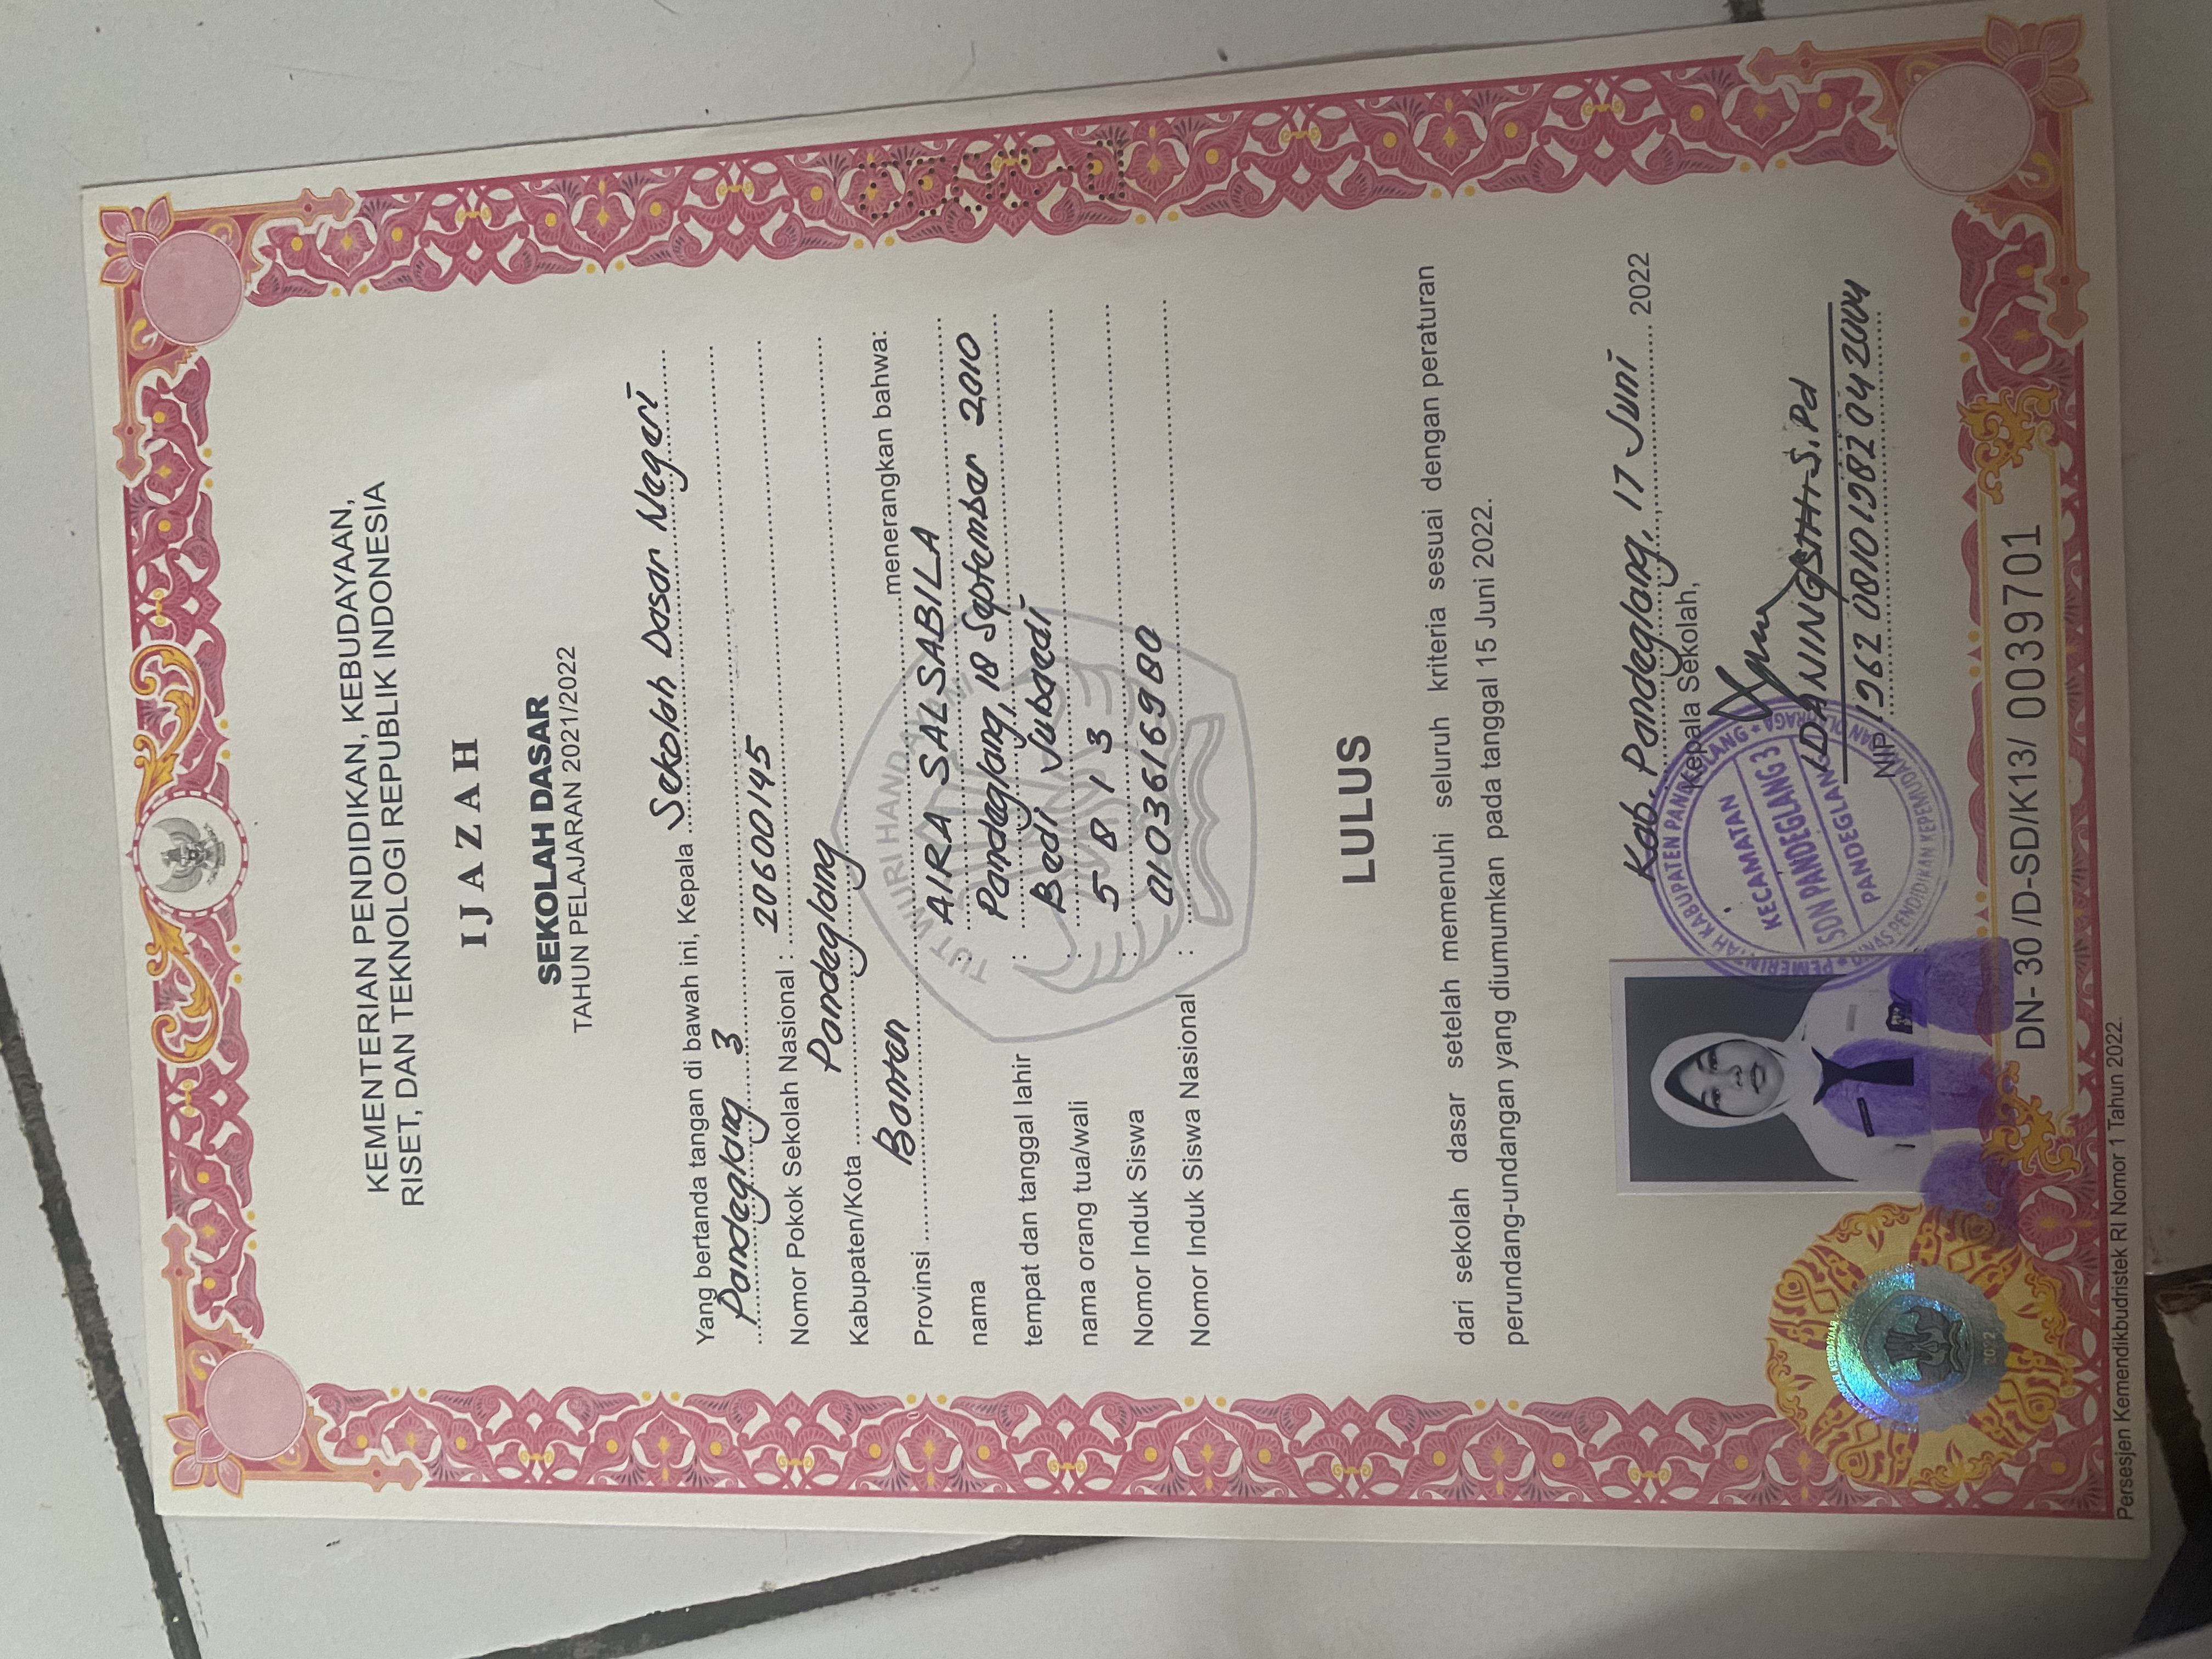 KEMENTERIAN PENDIDIKAN, KEBUDAYAAN,
RISET, DAN TEKNOLOGI REPUBLIK INDONESIA
IJAZAH
SEKOLAH DASAR
TAHUN PELAJARAN 2021/2022
Yang bertanda tangan di bawah ini, Kepala Sekolah Dasar Negeri
Pandeglang 3
Nomor Pokok Sekolah Nasional : 20600145
Kabupaten/Kota Pandeglang
Provinsi Banten menerangkan bahwa:
TUT WURI HANDAYANI
nama : AIRA SALSABILA
tempat dan tanggal lahir : Pandeglang, 18 September 2010
nama orang tua/wali : Bedi Jubaedi
Nomor Induk Siswa : 5813
Nomor Induk Siswa Nasional : 0103616980
LULUS
dari sekolah dasar setelah memenuhi seluruh kriteria sesuai dengan peraturan
perundang-undangan yang diumumkan pada tanggal 15 Juni 2022.
Kab. Pandeglang, 17 Juni 2022
Kepala Sekolah,
PEMERINTAH KABUPATEN PANDEGLANG
KECAMATAN
SDN PANDEGLANG 3
PANDEGLANG
DINAS PENDIDIKAN KEPEMUDAAN DAN OLAHRAGA
IDANINGSIH, S.Pd
NIP. 196208101982042004
PENDIDIKAN, KEBUDAYAAN
2022
DN- 30 /D-SD/K13/ 0039701
Persesjen Kemendikbudristek RI Nomor 1 Tahun 2022.